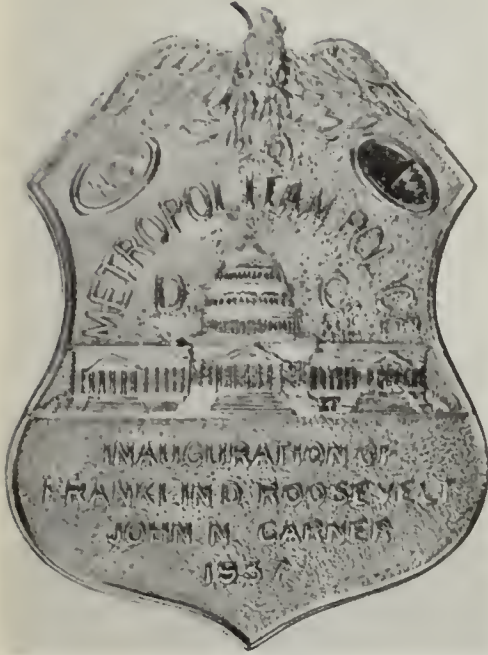 METROPOLITAN POLICE
D C
INAUGURATION OF
FRANKLIN D. ROOSEVELT
JOHN N. GARNER
1937